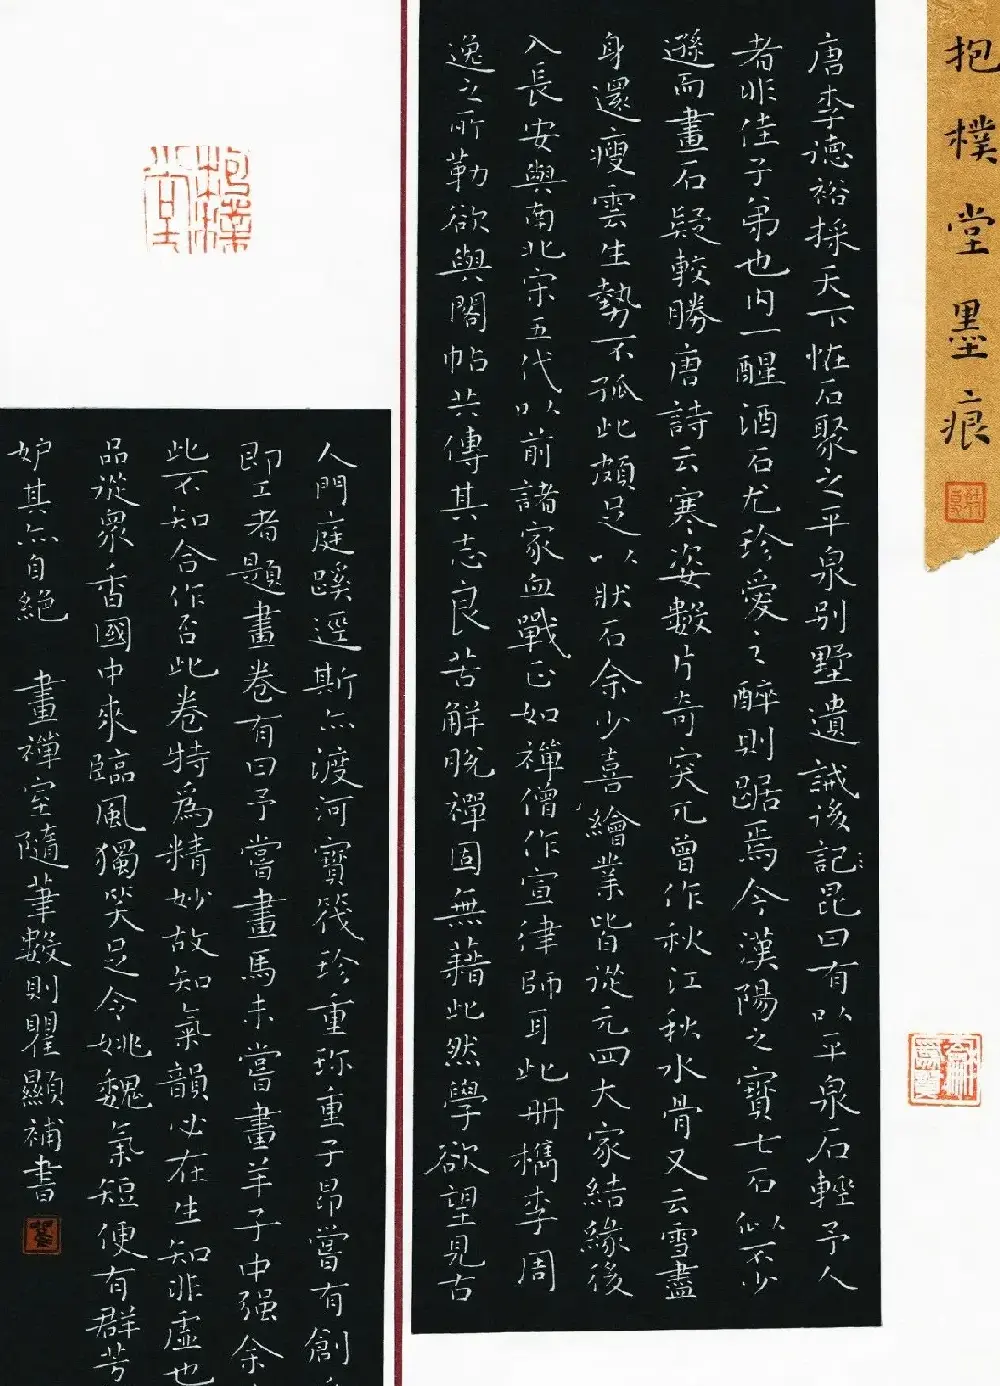 抱樸堂墨痕
唐李德裕採天下恠石聚之平泉别墅遺誡後記昆曰有以平泉石輕予人
者非佳子弟也内一醒酒石尤珍愛之醉則踞焉今漢陽之寶七石似不少
遜而畫石疑較勝唐詩云寒姿數片奇突兀曾作秋江秋水骨又云雪盡
身還瘦雲生勢不孤此頗足以狀石余少喜繪業皆從元四大家結緣後
入長安與南北宋五代以前諸家血戰正如禪僧作宣律師耳此冊檇李周
逸之所勒欲與閣帖共傳其志良苦解脱禪固無藉此然學欲望見古
人門庭蹊逕斯亦渡河寶筏珍重珎重子昂嘗有創
即工者題畫卷有曰予嘗畫馬未嘗畫羊子中强余
此不知合作否此卷特爲精妙故知氣韻必在生知非虚也
品從衆香國中來臨風獨笑足令姚魏氣短便有群芳
妒其亦自絶 畫禪室隨筆數則瞿顯補書
抱樸堂